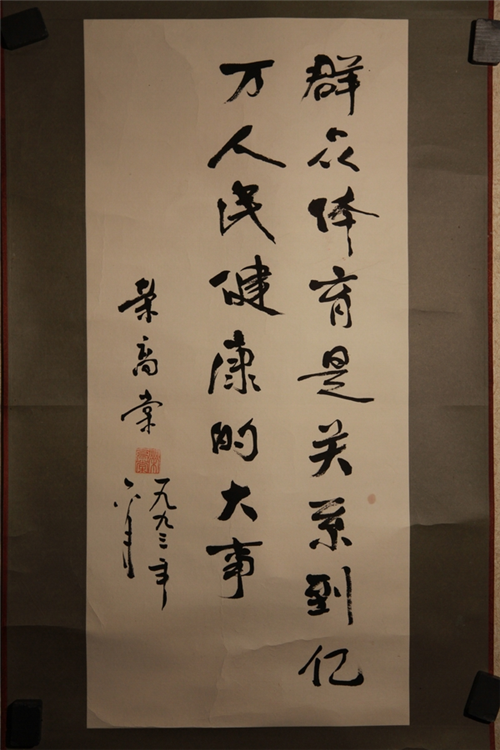 群众体育是关系到亿
万人民健康的大事
荣高棠
一九九三年
六月